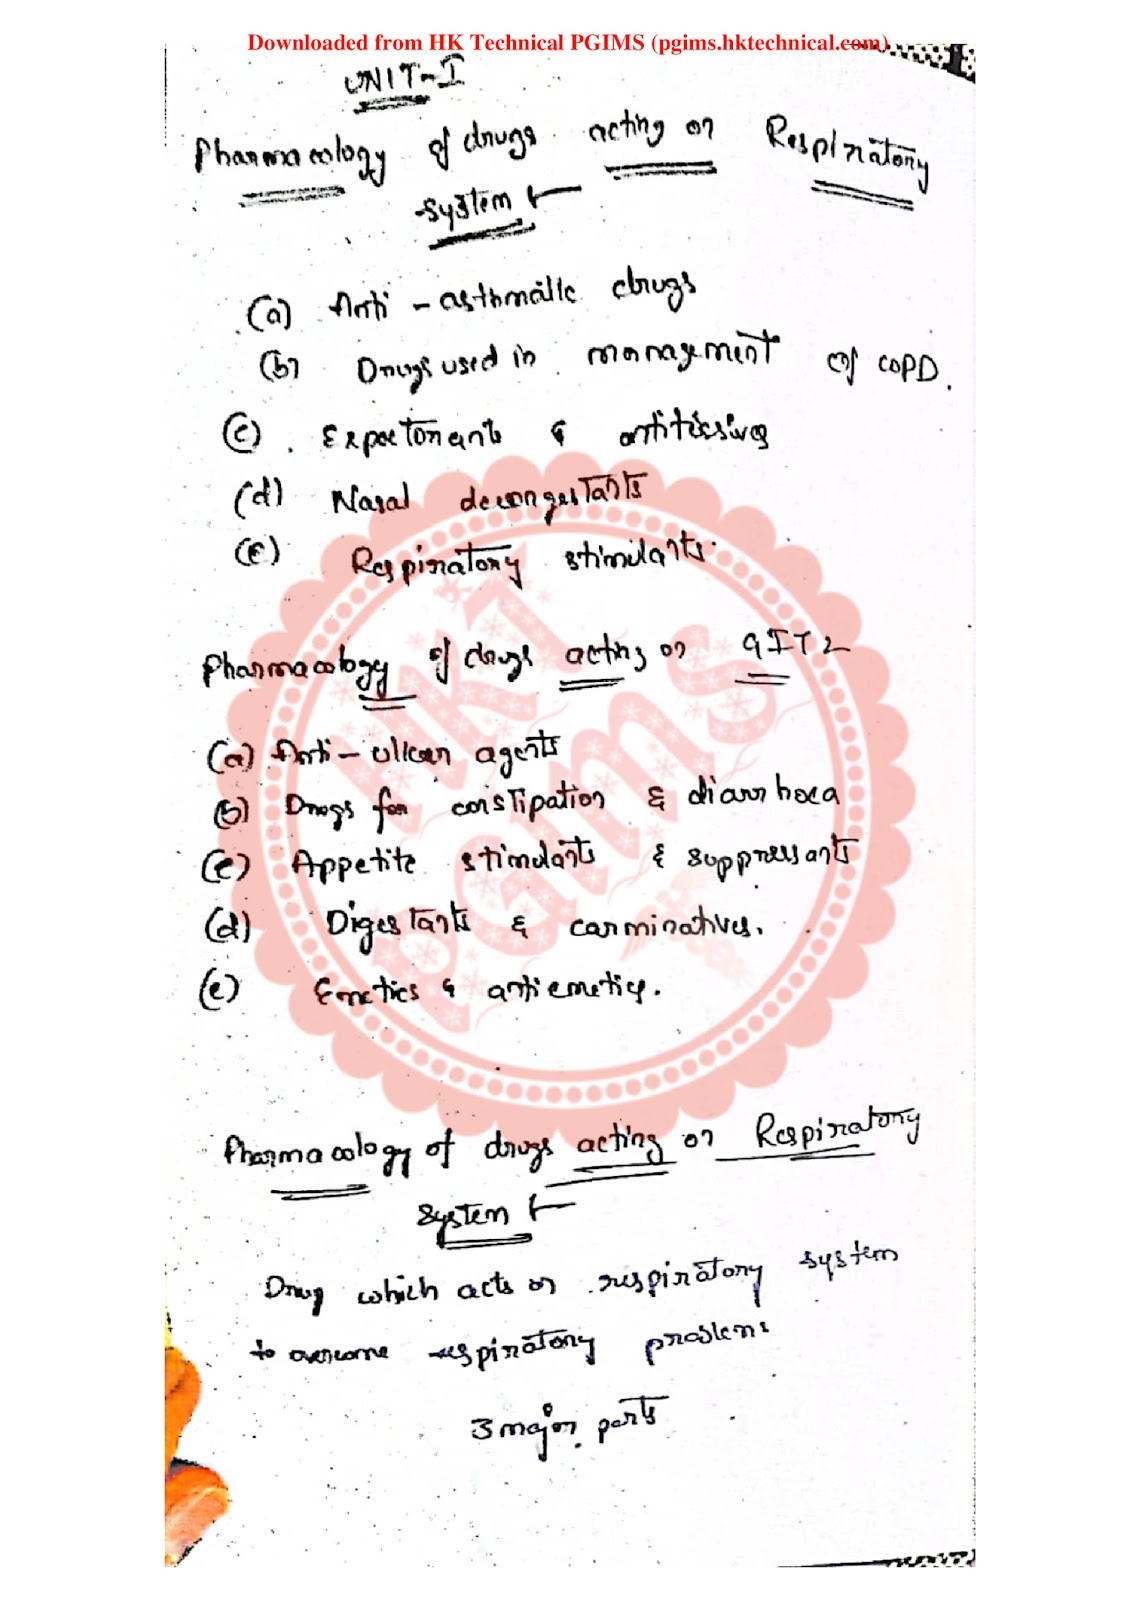 Downloaded from HK Technical PGIMS (pgims.hktechnical.com)
UNIT-I
Pharmacology of drugs acting on Respiratory
system :-
(a) Anti - asthmatic drugs
(b) Drugs used in management of COPD.
(c). Expectorants & antitussives
(d) Nasal decongestants
(e) Respiratory stimulants.
Pharmacology of drugs acting on GIT :-
(a) Anti - ulcer agents
(b) Drugs for constipation & diarrhoea
(c) Appetite stimulants & suppressants
(d) Digestants & carminatives.
(e) Emetics & antiemetics.
Pharmacology of drugs acting on Respiratory
System :-
Drug which acts on respiratory system
to overcome respiratory problems
3 major parts
HKT
PGIMS